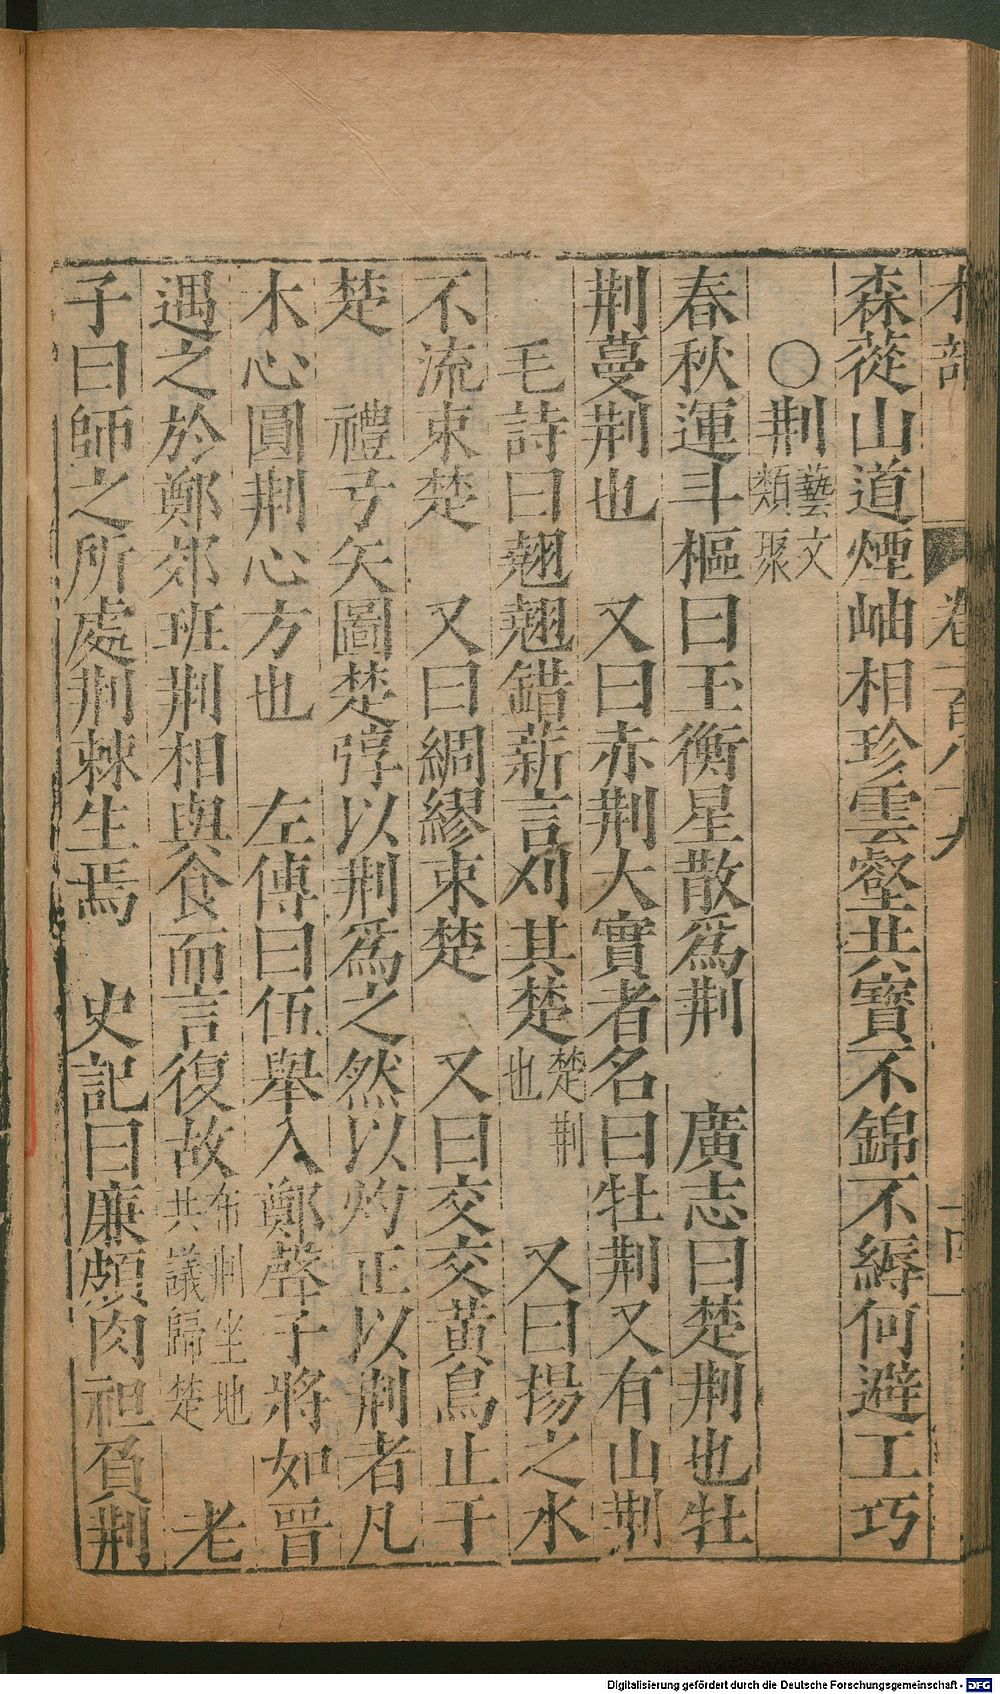 木部 卷一百八十九 十四
森蓯山道煙岫相珍雲壑共寶不錦不縟何避工巧
○荆藝文類聚
春秋運斗樞曰玉衡星散爲荆 廣志曰楚荆也牡
荆蔓荆也 又曰赤荆大實者名曰牡荆又有山荆
毛詩曰翹翹錯薪言刈其楚楚荆也 又曰揚之水
不流束楚 又曰綢繆束楚 又曰交交黃鳥止于
楚 禮弓矢圖楚焞以荆爲之然以灼正以荆者凡
木心圓荆心方也 左傳曰伍舉入鄭聲子將如晉
遇之於鄭郊班荆相與食而言復故布荆坐地共議歸楚 老
子曰師之所處荆棘生焉 史記曰廉頗肉袒負荆
Digitalisierung gefördert durch die Deutsche Forschungsgemeinschaft - DFG